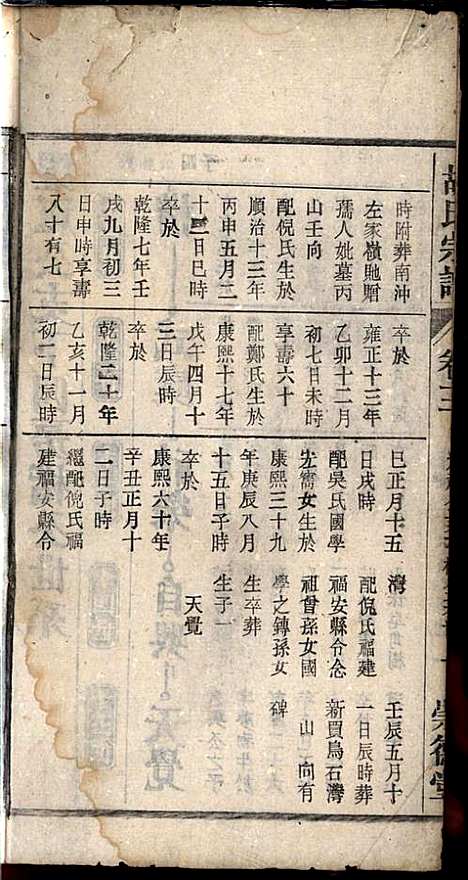 時附葬南沖
左家嶺貤贈
孺人妣墓丙
山壬向
配倪氏生於
順治十三年
丙申五月二
十三日巳時
卒於
乾隆七年壬
戌九月初三
日申時享壽
八十有七
卒於
雍正十三年
乙卯十二月
初七日未時
享壽六十
配鄭氏生於
康熙十七年
戊午四月十
三日辰時
卒於
乾隆二十年
乙亥十一月
初二日辰時
巳正月十五
日戌時
配吳氏國學
左甯女生於
康熙三十九
年庚辰八月
十五日子時
卒於
康熙六十年
辛丑正月十
二日子時
繼配倪氏福
建福安縣令
灣
配倪氏福建
福安縣令念
祖曾孫女國
學之轉孫女
生卒葬
生子一
天覺
壬辰五月十
一日辰時葬
新買烏石灣
山向有
碑
胡氏宗譜
卷三
崇德堂